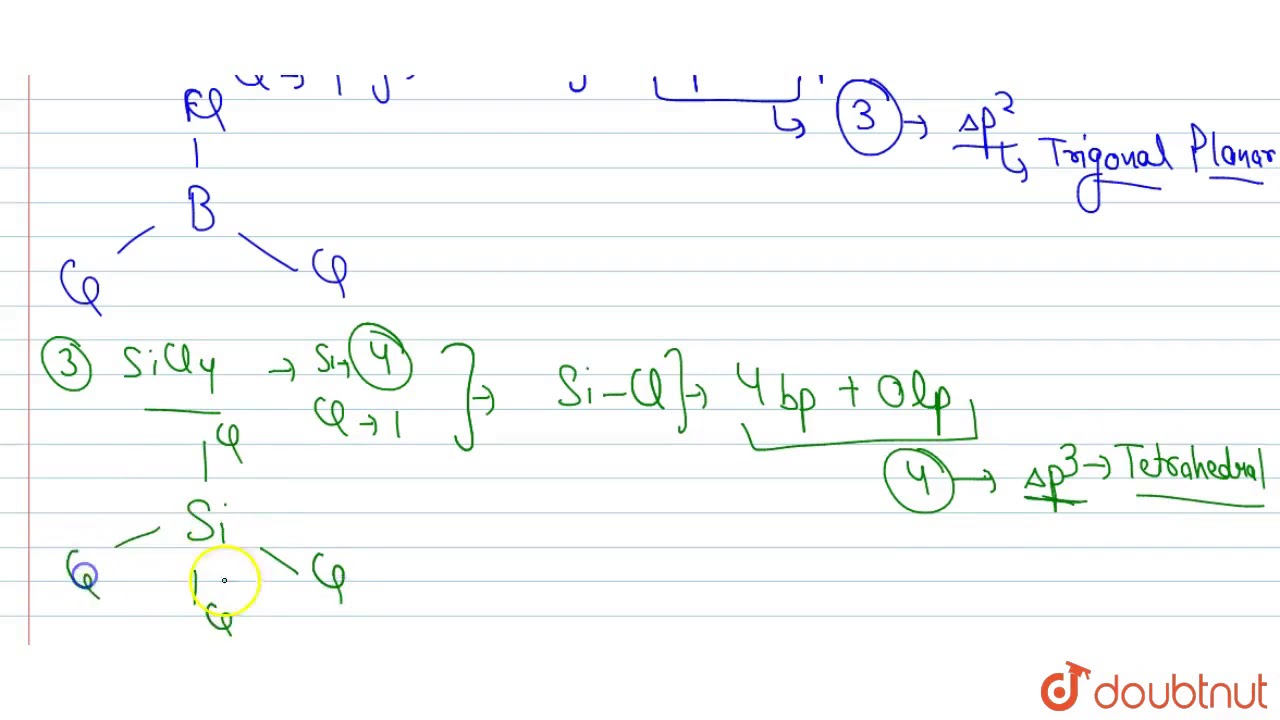 3 → sp²
↳ Trigonal Planar
Cl
B
Cl Cl
③ SiCl4 → Si → 4 } → Si-Cl } → 4 bp + 0 lp
Cl → 1
4 → sp³ → Tetrahedral
Cl
Si
Cl Cl
Cl
doubtnut